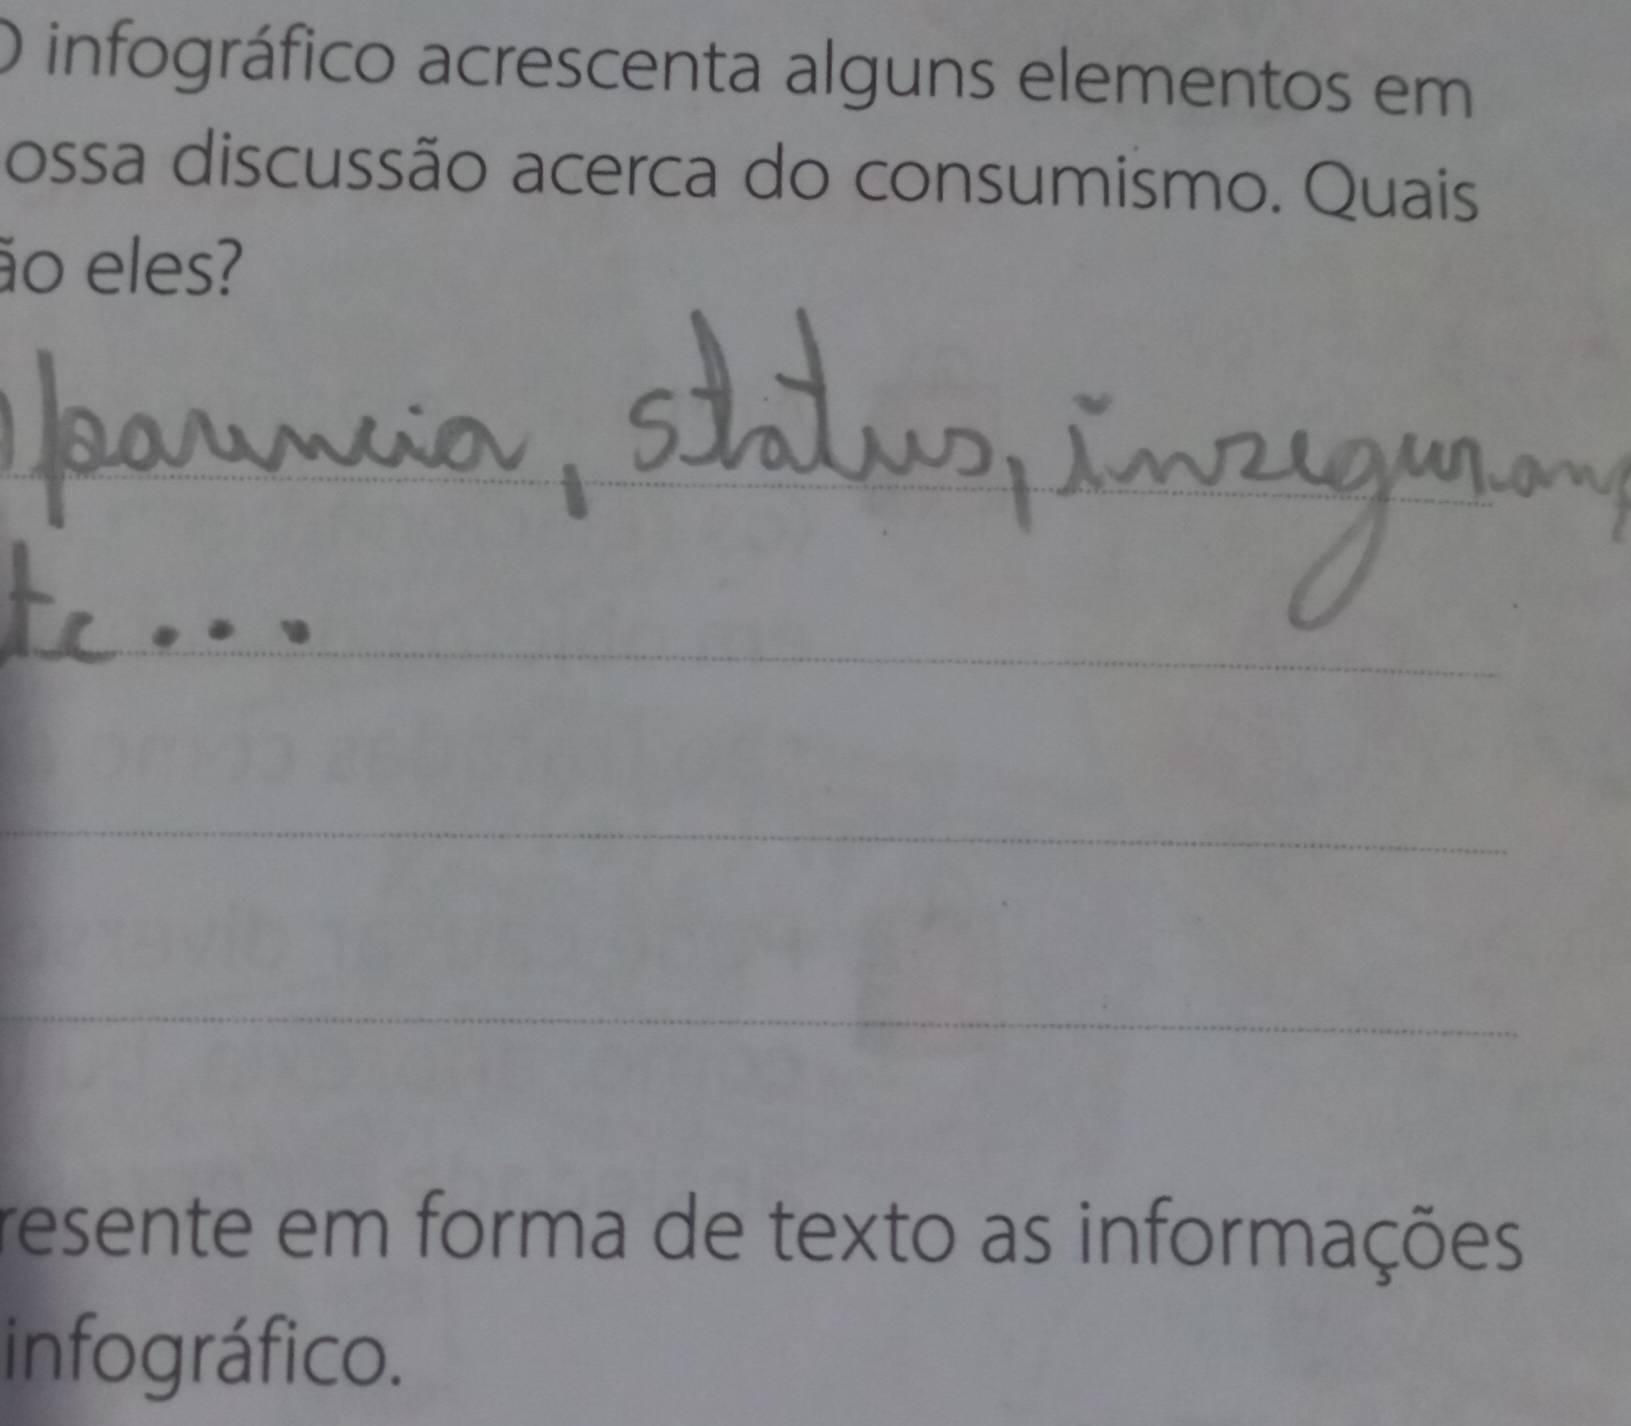 O infográfico acrescenta alguns elementos em
ossa discussão acerca do consumismo. Quais
ão eles?
aparencia, status, inseguranç
tc...
resente em forma de texto as informações
infográfico.